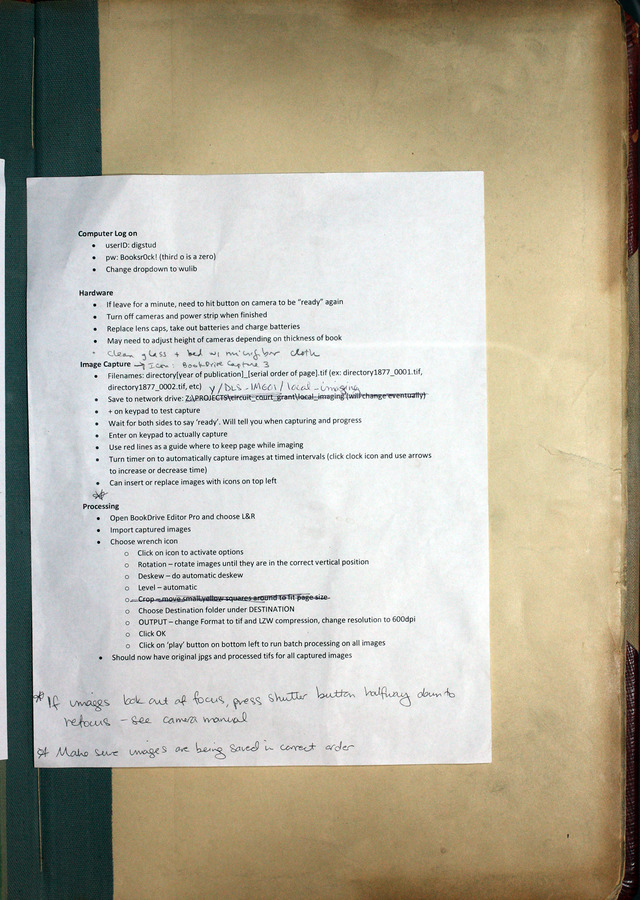 Computer Log on
• userID: digstud
• pw: Booksr0ck! (third o is a zero)
• Change dropdown to wulib
Hardware
• If leave for a minute, need to hit button on camera to be "ready" again
• Turn off cameras and power strip when finished
• Replace lens caps, take out batteries and charge batteries
• May need to adjust height of cameras depending on thickness of book
• clean glass + bed w/ microfiber cloth
Image Capture → Icon: BookDrive Capture 3
• Filenames: directory[year of publication]_[serial order of page].tif (ex: directory1877_0001.tif,
directory1877_0002.tif, etc) y/DLS-IMG01/local-imaging
• Save to network drive: Z:\PROJECTS\circuit_court_grant\local_imaging (will change eventually)
• + on keypad to test capture
• Wait for both sides to say 'ready'. Will tell you when capturing and progress
• Enter on keypad to actually capture
• Use red lines as a guide where to keep page while imaging
• Turn timer on to automatically capture images at timed intervals (click clock icon and use arrows
to increase or decrease time)
• Can insert or replace images with icons on top left
Processing
• Open BookDrive Editor Pro and choose L&R
• Import captured images
• Choose wrench icon
o Click on icon to activate options
o Rotation – rotate images until they are in the correct vertical position
o Deskew – do automatic deskew
o Level – automatic
o Crop – move small yellow squares around to fit page size
o Choose Destination folder under DESTINATION
o OUTPUT – change Format to tif and LZW compression, change resolution to 600dpi
o Click OK
o Click on 'play' button on bottom left to run batch processing on all images
• Should now have original jpgs and processed tifs for all captured images
* If images look out of focus, press shutter button halfway down to
refocus - see camera manual
* Make sure images are being saved in correct order